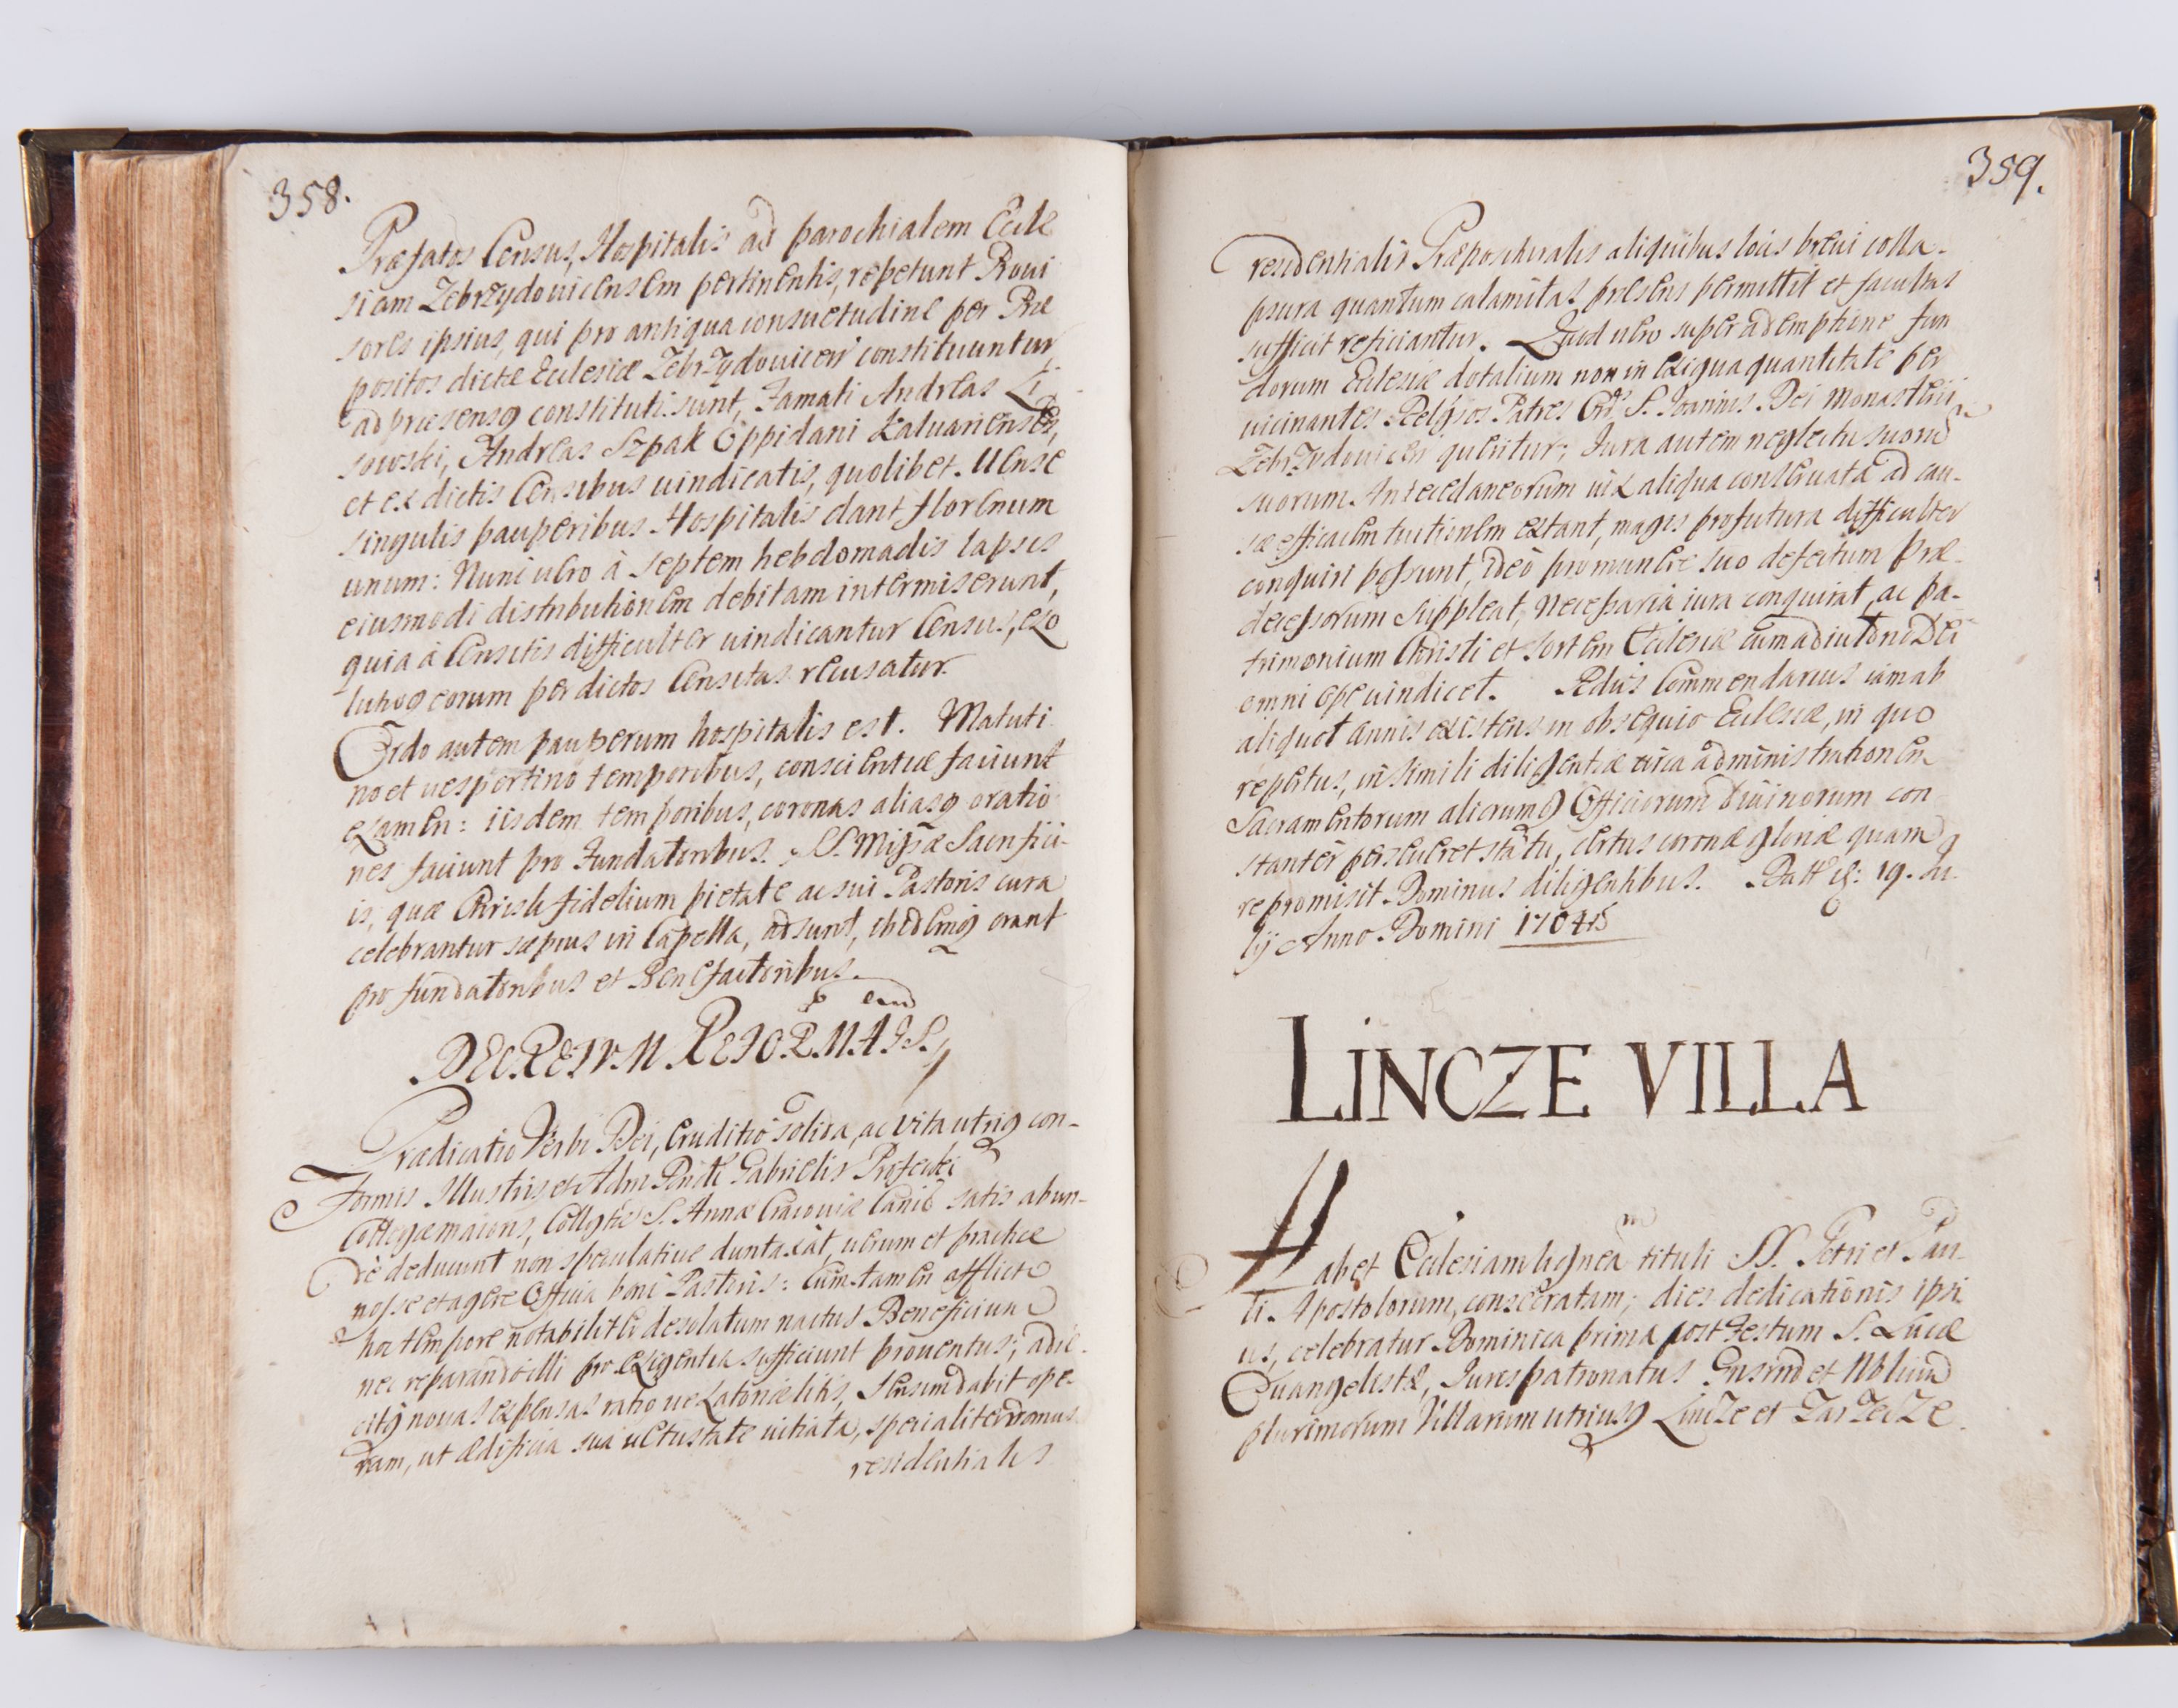 358.
Præfatos Census, Hospitalis ad parochialem Eccle
siam Zebrzydouicensem pertinentis, repetunt Proui
sores ipsius, qui pro antiqua consuetudine per Præ
positos dictæ Ecclesiæ Zebrzydouicen constituuntur,
ad præsensq constituti sunt, Famati Andreas Li
sowski, Andreas Szpak Oppidani Kaluarienses,
et ex dictis Censibus uindicatis, quolibet Mense
singulis pauperibus Hospitalis dant florenum
unum: Nunc uero à septem hebdomadis lapsis
eiusmodi distributionem debitam intermiserunt,
quia à Censitis difficulter uindicantur Census, exo
lutioq eorum per dictos Censitas recusatur.
Ordo autem pauperum hospitalis est. Matuti
no et uespertino temporibus, conscientiæ faciunt
examen: iisdem temporibus, coronas aliasq oratio
nes faciunt pro Fundatoribus. SS. Missæ Sacrifici
is, quæ Christi fidelium pietate ac sui Pastoris cura
celebrantur sæpius in Capella, adsunt, ibidemq orant
pro fundatoribus et Benefactoribus.
DECRETVM REFORMAIS.
Prædicatio Verbi Dei, Eruditio solida, ac vita utriq con-
formis Illustris et Adm Rndi Gabrielis Profecki
Collegæ maioris, Collgtæ S. Annæ Cracouiæ Canci satis abun-
dè deducunt non speculatiue duntaxat, uerum et practice
nosse et agere Officia boni Pastoris: Cum tamen afflicto
hoc tempore notabiliter desolatum nactus Beneficium
nec reparando illi pro exigentia sufficiunt prouentus; adij-
citq nouas expensas ratio uexatoriæ litis, Sensim dabit ope-
ram, ut ædificia sua uetustate uitiata, specialiter domus
residentialis
359.
residentialis Præposituralis aliquibus locis breui colla-
psura quantum calamitas præsens permittit et facultas
sufficit reficiantur. Quod uero super ademptione fun
dorum Ecclesiæ dotalium non in exigua quantitate per
uicinantes Relgsos Patres Ord. S. Ioannis Dei Monasterii
Zebrzydouicen queritur; Iura autem neglectu suorum
suorum Antecedaneorum uix aliqua conseruata ad cau-
sæ efficacem tuitionem extant, magis profutura difficulter
conquiri possunt, ideò pro munere suo defectum Præ-
decessorum suppleat, necessaria iura conquirat, ac pa-
trimonium Christi et sortem Ecclesiæ cum adiutorio Dei
omni ope uindicet. Rdus Commendarius iam ab
aliquot annis existens in obsequio Ecclesiæ, in quo
repertus, in simili diligentiæ circa administrationem
Sacramentorum aliorumq Officiorum diuinorum con
stanter perseueret statu, certus coronæ gloriæ quam
repromisit Dominus diligentibus. Datt 19. Iu
lij Anno Domini
LINCZE VILLA
Habet Ecclesiam lignea m tituli SS. Petri et Pau
li Apostolorum, consecratam; dies dedicationis ipsi
us, celebratur Dominica prima post Festum S. Lucæ
Euangelistæ, Iuris patronatus Gnsrm et Nblium
plurimorum Villarum utriusq Lincze et Zarzecze.